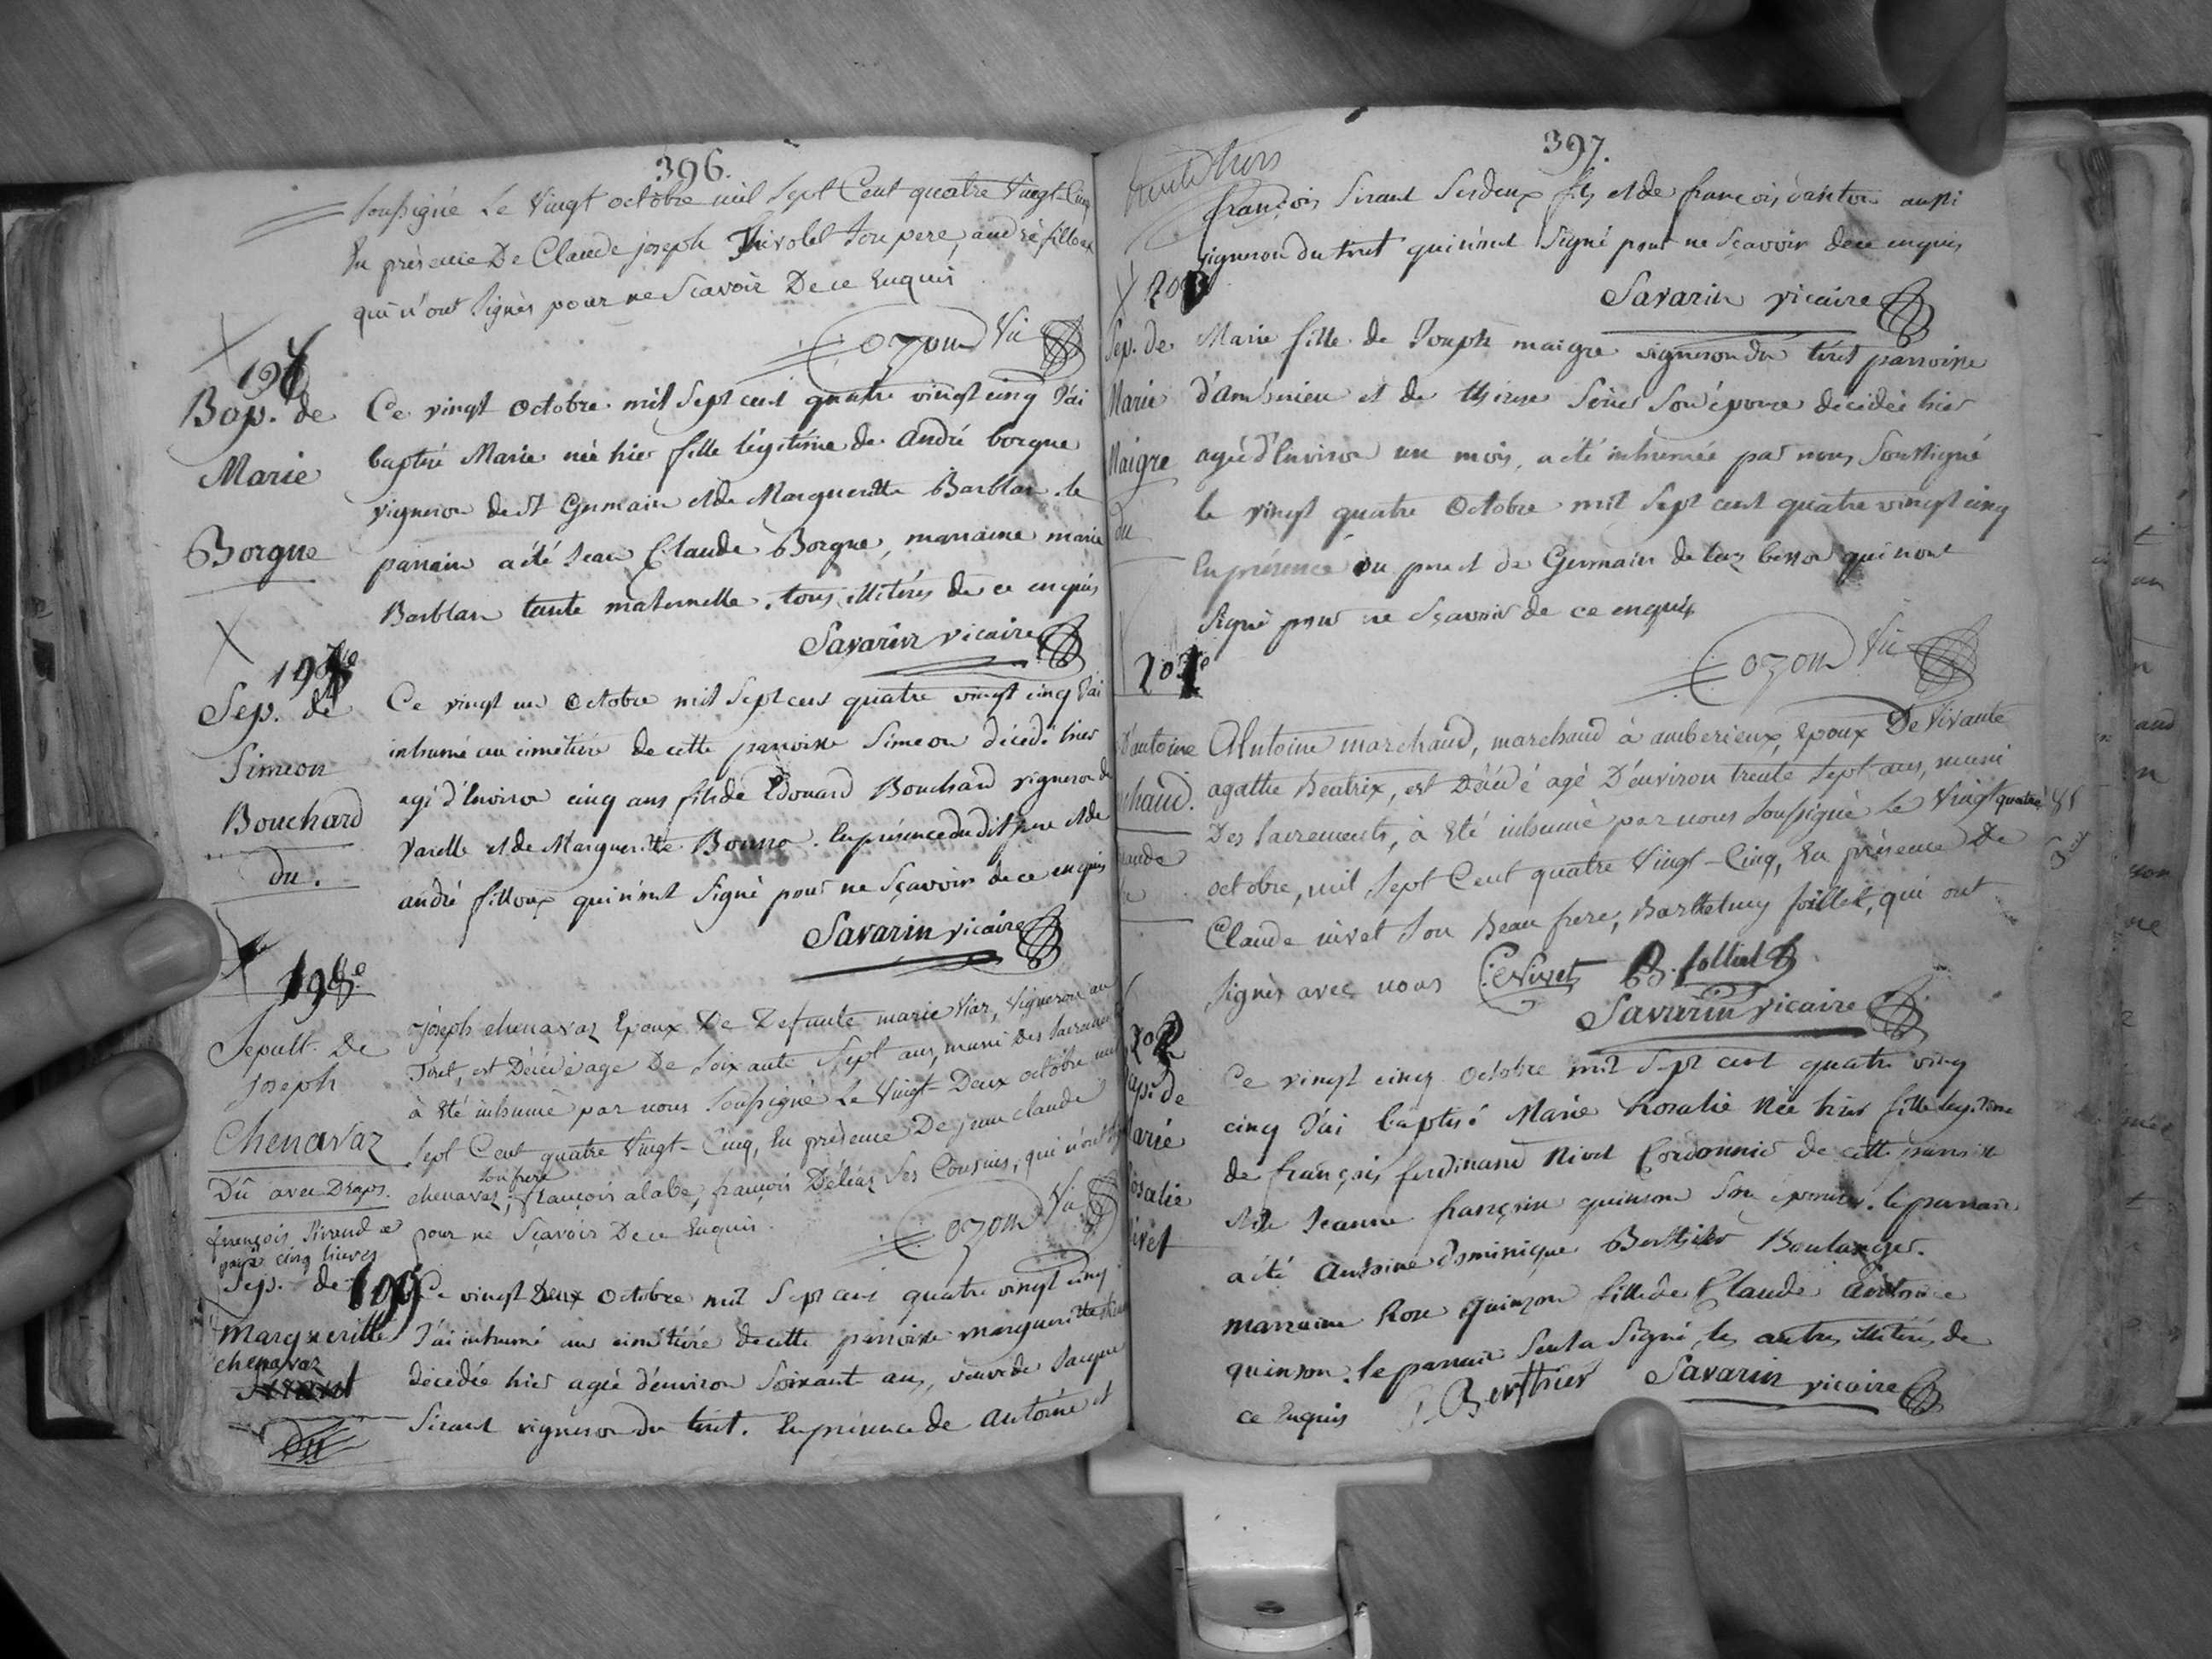 396.
soussigné Le Vingt octobre mil Sept Cent quatre Vingt-Cinq
En présence De Claude joseph Thivolet Son pere, andré filloux
qui n'ont Signés pour ne Scavoir De ce Enquis
Cozon Vic
Bap. de
Marie
Borgne
Ce vingt octobre mil Sept cent quatre vingt cinq J'ai
baptisé Marie née hier fille légitime de andré borgne
vigneron de St Germain et de Margueritte Barblan. le
parrain a été Jean Claude Borgne, marraine marie
Barblan tante maternelle. tous illitérés de ce enquis
Savarin vicaire
Sep. de
Simeon
Bouchard
du.
Ce vingt un Octobre mil Sept cent quatre vingt cinq J'ai
inhumé au cimetière de cette paroisse Simeon décédé hier
agé d'Environ cinq ans fils de Edouard Bouchard vigneron de
Vareille et de Margueritte Bonno. En présence du dit pere et de
andré filloux qui n'ont Signé pour ne Sçavoir de ce enquis
Savarin vicaire
198e
Sepult. De
joseph
Chenavaz
Dû avec Draps.
françois Sirand a
payé cinq livres
joseph chenavaz Epoux De Defunte marie Viar, Vigneron au
Tiret, est Décédé age De Soixante Sept ans, muni Des Sacrements
à Eté inhumé par nous Soussigné Le Vingt-Deux octobre mil
Sept Cent quatre Vingt-Cinq, En présence De jean claude
son frere
chenavaz, françois alabe, françois Déléaz Ses Cousins, qui n'ont
pour ne Sçavoir De ce Enquis.
Cozon Vic
Sep. de 199
Margueritte
chenavaz
Sirand
Du
Ce vingt Deux Octobre mil Sept cent quatre vingt cinq
J'ai inhumé au cimetière de cette paroisse margueritte
décédée hier agée d'environ Soixante ans, veuve de Jacque
Siraud vigneron du tiret. En présence de Antoine et
397.
françois Siraud Ses deux fils et de françois aussi
vigneron du tiret qui n'ont Signé pour ne Sçavoir de ce enquis
Savarin vicaire
Sep. de
Marie
Maigre
du
Marie fille de Joseph maigre vigneron du tiret parroisse
d'ambérieu et de therese Son épouse décédée hier
agée d'Environ un mois, a été inhumée par nous Soussigné
le vingt quatre Octobre mil Sept cent quatre vingt cinq
En présence du pere et de Germain de laz besson qui n'ont
Signé pour ne Sçavoir de ce enquis
Cozon Vic
201e
D'antoine
chaud.
Antoine marchand, marchand à amberieux, Epoux De Vivante
agathe Beatrix, est Décédé agé D'environ trente Sept ans, muni
Des Sacrements, à Eté inhumé par nous Soussigné Le Vingt quatre
octobre, mil Sept Cent quatre Vingt-Cinq, En présence De
Claude nivet Son Beau frere, Barthelemy foillet, qui ont
Signés avec nous C. Nivet B. folliet
Savarin vicaire
202
Bap. de
Marie
Rosalie
Nivet
Ce vingt cinq Octobre mil Sept cent quatre vingt
cinq J'ai baptisé Marie Rosalie Née hier fille legitime
de françois ferdinand Nivet Cordonnier de cette paroisse
et de Jeanne françoise quinson Son épouse. le parrain
a été Antoine dominique Berthier Boulanger.
marraine Rose quinson fille de Claude Antoine
quinson. le parrain Seul a Signé, les autres illitérés de
ce Enquis Berthier Savarin vicaire